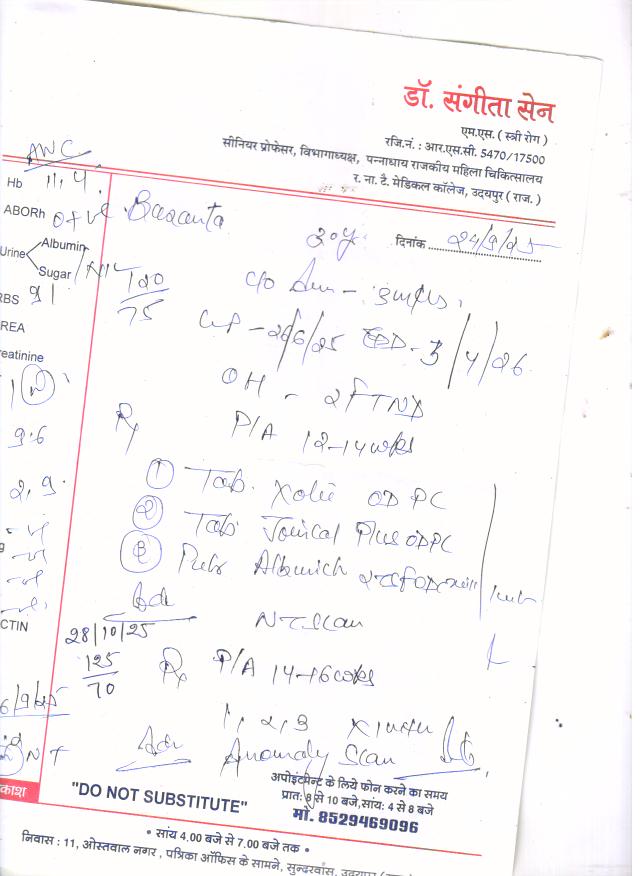 डॉ. संगीता सेन
एम.एस. ( स्त्री रोग )
रजि.नं. : आर.एस.सी. 5470/17500
सीनियर प्रोफेसर, विभागाध्यक्ष, पन्नाधाय राजकीय महिला चिकित्सालय
र. ना. टै. मेडिकल कॉलेज, उदयपुर ( राज. )
ANC
Hb 11.4
ABORh O+ve
30y दिनांक 24/9/25
Urine Albumin
Sugar / Nil
120
75
C/o - 3 mths.
RBS 91
LMP - 26/6/25 EDD - 3/4/26
REA
eatinine
OH - 2FTND
Rx P/A 12-14 wks
9.6
① Tab. OD PC
2.9
② Tab. Plus OD PC
-ve
③
-ve
-ve
-ve
Adv NT Scan
CTIN
28/10/25
125
70
Rx P/A 14-16 wks
6/9/25
1, 2, 3 x
NT
Adv Anomaly Scan
अपोइंटमेन्ट के लिये फोन करने का समय
प्रात: 8 से 10 बजे,सांय: 4 से 8 बजे
मो. 8529469096
काश
"DO NOT SUBSTITUTE"
• सांय 4.00 बजे से 7.00 बजे तक •
निवास : 11, ओस्तवाल नगर , पत्रिका ऑफिस के सामने, सुन्दरवास, उदयपुर